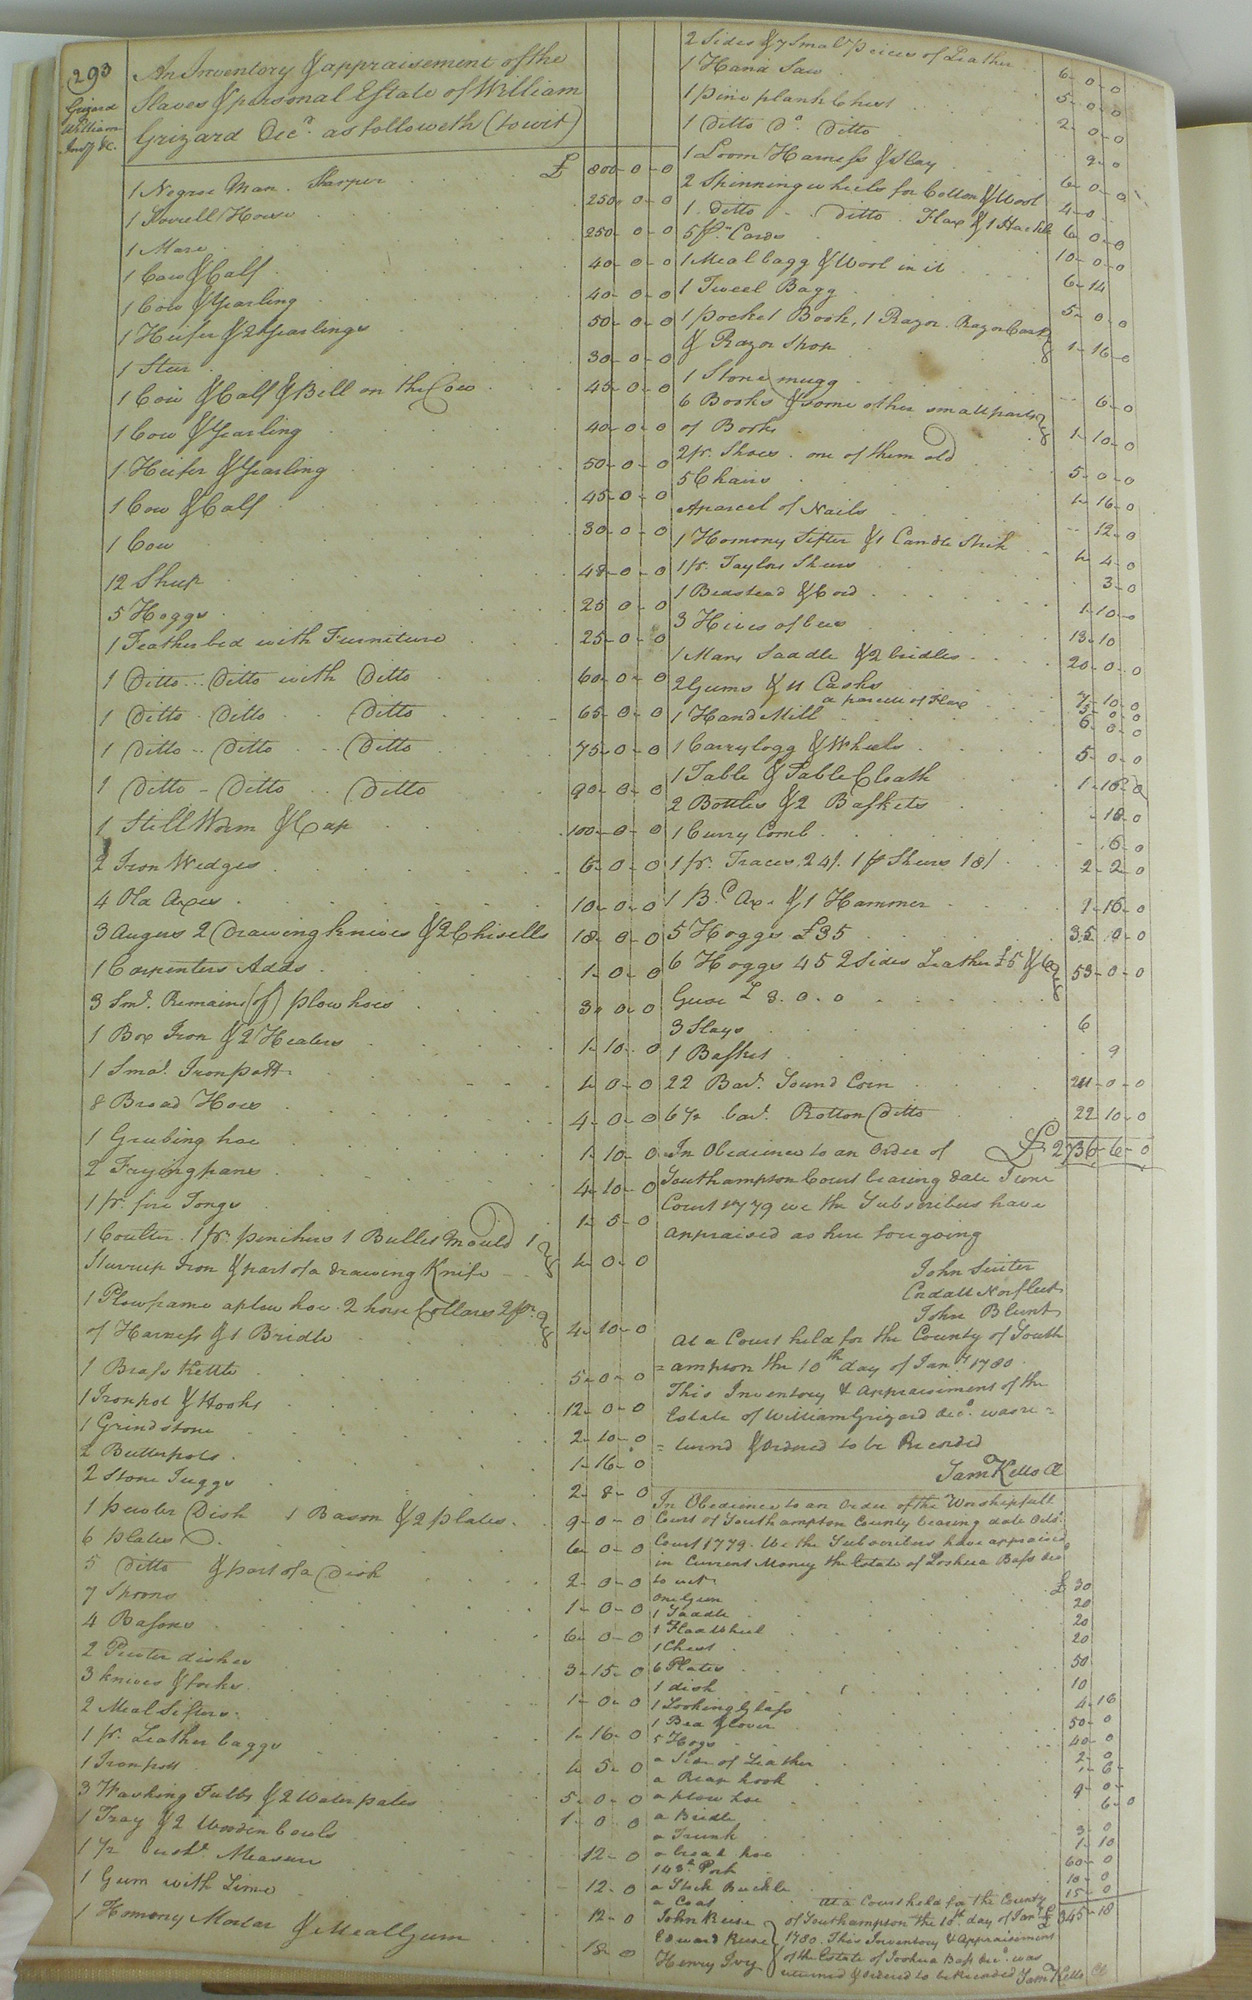 293
Grizard
William
Invy &c.
An Inventory & appraisement of the
Slaves & personal Estate of William
Grizard Decd. as followeth (to wit)
1 Negroe Man. Sharper £ 800-0-0
1 Sorrell Horse 250-0-0
1 Mare 250-0-0
1 Cow & Calf 40-0-0
1 Cow & Yearling 40-0-0
1 Heifer & 2 Yearlings 50-0-0
1 Steer 30-0-0
1 Cow & Calf & Bell on the Cow 45-0-0
1 Cow & Yearling 40-0-0
1 Heifer & Yearling 50-0-0
1 Cow & Calf 45-0-0
1 Cow 30-0-0
12 Sheep 48-0-0
5 Hoggs 25-0-0
1 Feather bed with Furniture 25-0-0
1 Ditto Ditto with Ditto 60-0-0
1 Ditto Ditto Ditto 65-0-0
1 Ditto Ditto Ditto 75-0-0
1 Ditto Ditto Ditto 90-0-0
1 Still Worm & Cap 100-0-0
2 Iron Wedges 6-0-0
4 Old Axes 10-0-0
3 Augurs 2 Drawing knives & 2 Chisells 18-0-0
1 Carpenters Adds 1-0-0
3 Sml. Remains (of) plow hoes 3-0-0
1 Box Iron & 2 Heaters 1-10-0
1 Smal. Iron pott 1-0-0
8 Broad Hoes 4-0-0
1 Grubing hoe 1-10-0
2 Frying pans 4-10-0
1 pr. fire Tongs 1-5-0
1 Coulter. 1 pr. pinchers 1 Bullet Mould 1
Sturrup Iron & part of a drawing Knife 4-0-0
1 Plow frame a plow hoe. 2 horse Collars 2 pr.
of Harness & 1 Bridle 4-10-0
1 Brass Kettle 5-0-0
1 Iron pot & Hooks 12-0-0
1 Grindstone 2-10-0
2 Butter pots 1-16-0
2 Stone Juggs 2-8-0
1 pewter Dish 1 Bason & 2 plates 9-0-0
6 plates 6-0-0
5 Ditto & part of a Dish 2-0-0
7 Spoons 1-0-0
4 Basons 6-0-0
2 Pewter dishes 3-15-0
3 knives & forks 1-0-0
2 Meal Sifters 1-16-0
1 pr. Leather baggs 4-5-0
1 Iron pott 5-0-0
3 Washing Tubbs & 2 Water pales 1-0-0
1 Tray & 2 Wooden bowls 12-0
1 1/2 bushl. Measure 12-0
1 Gum with Lime 12-0
1 Homony Mortar & Meal Gum 18-0
2 Sides & 7 Smal peices of Leather 6-0-0
1 Hand Saw 5-0-0
1 pine plank Chest 2-0-0
1 Ditto Do. Ditto 9-0
1 Loom Harness & Slay 6-0-0
2 Spinning wheels for Cotton & Wool 4-0
1 ditto ditto Flax & 1 Hackle 6-0-0
5 pr. Cards 10-0-0
1 Meal bagg & Wool in it 6-14
1 Tweel Bagg 5-0-0
1 pocket Book, 1 Razor. Razor Case
& Razor Strop 1-16-0
1 Stone mugg 6-0
6 Books & some other small parts
of Books 1-10-0
2 pr. Shoes. one of them old 5-0-0
5 Chairs 1-16-0
A parcel of Nails 12-0
1 Homony Sifter & 1 Candle Stick 4-4-0
1 pr. Taylors Shears 3-0
1 Beadstead & Cord 1-10-0
3 Hives of bees 13-10
1 Mans Saddle & 2 bridles 20-0-0
2 Gums & 11 Casks 7-10-0
a parcell of Flax 5-0-0
1 Hand Mill 6-0-0
1 Carry logg & Wheels 5-0-0
1 Table & Table Cloath 1-16-0
2 Bottles & 2 Baskets 18-0
1 Curry Comb 6-0
1 pr. Traces 24/. 1 pr Shears 18/ 2-2-0
1 Bd. Ax. & 1 Hammer 1-16-0
5 Hoggs £35 35-0-0
6 Hoggs 45 2 Sides Leather £5 & 6
Geese £3.0.0 53-0-0
3 Slays 6
1 Basket 9
22 Barl. Sound Corn 211-0-0
6 1/2 barl. Rotton Ditto 22-10-0
£2736-6-0
In Obedience to an Order of
Southampton Court bearing date June
Court 1779 we the Subscribers have
appraised as here foregoing
John Suiter
Cordall Norfleet
John Blunt
At a Court held for the County of South
=ampton the 10th day of Jany 1780.
This Inventory & appraisiment of the
Estate of William Grizard decd. was re=
=turned & Ordered to be Recorded
Sam Kello Cl
In Obedience to an Order of the Worshipfull
Court of Southampton County bearing date Octr.
Court 1779. We the Subscribers have appraised
in Current Money the Estate of Joshua Bass decd
to wit
One Gun £30
1 Saddle 20
1 Flax Wheel 20
1 Chest 20
6 Plates 50
1 dish 10
1 Looking Glass 4-16
1 Bed & Cover 50-0
5 Hogs 40-0
a Side of Leather 2-0
a Reap hook 1-6-
a plow hoe 9-0-
a Bridle 6-0
a Trunk 3-0
a broad hoe 1-10
148 lb. Pork 60-0
a Stock Buckle 10-0
a Coat 15-0
£345-18
John Reese
Edward Reese
Henry Ivy
At a Court held for the County
of Southampton the 10th. day of Jany.
1780. This Inventory & Appraisiment
of the Estate of Joshua Bass decd. was
returned & Ordered to be Recorded Sam Kello Cl